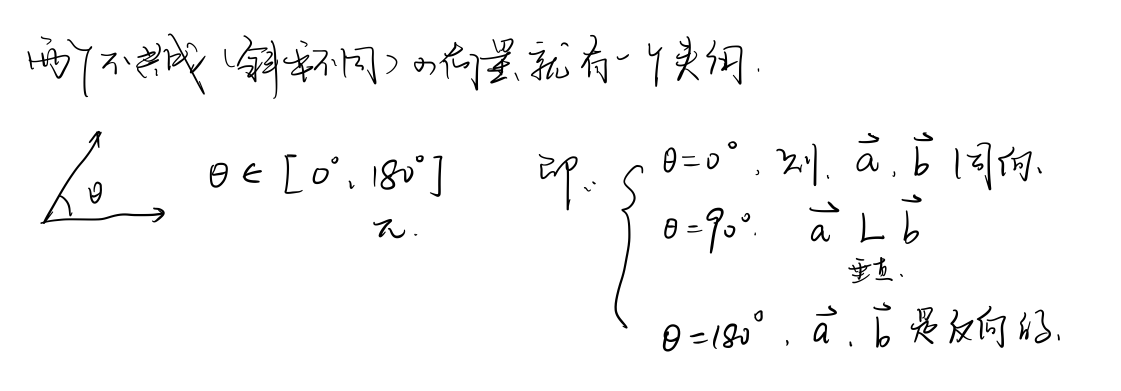 两个不共线(斜率不同)の向量、就有一个夹角.
θ
θ∈[0°、180°]
π.
即:
θ=0°, 则、a⃗、b⃗ 同向、
θ=90°. a⃗ ⊥ b⃗
垂直.
θ=180°、a⃗、b⃗ 是反向的.